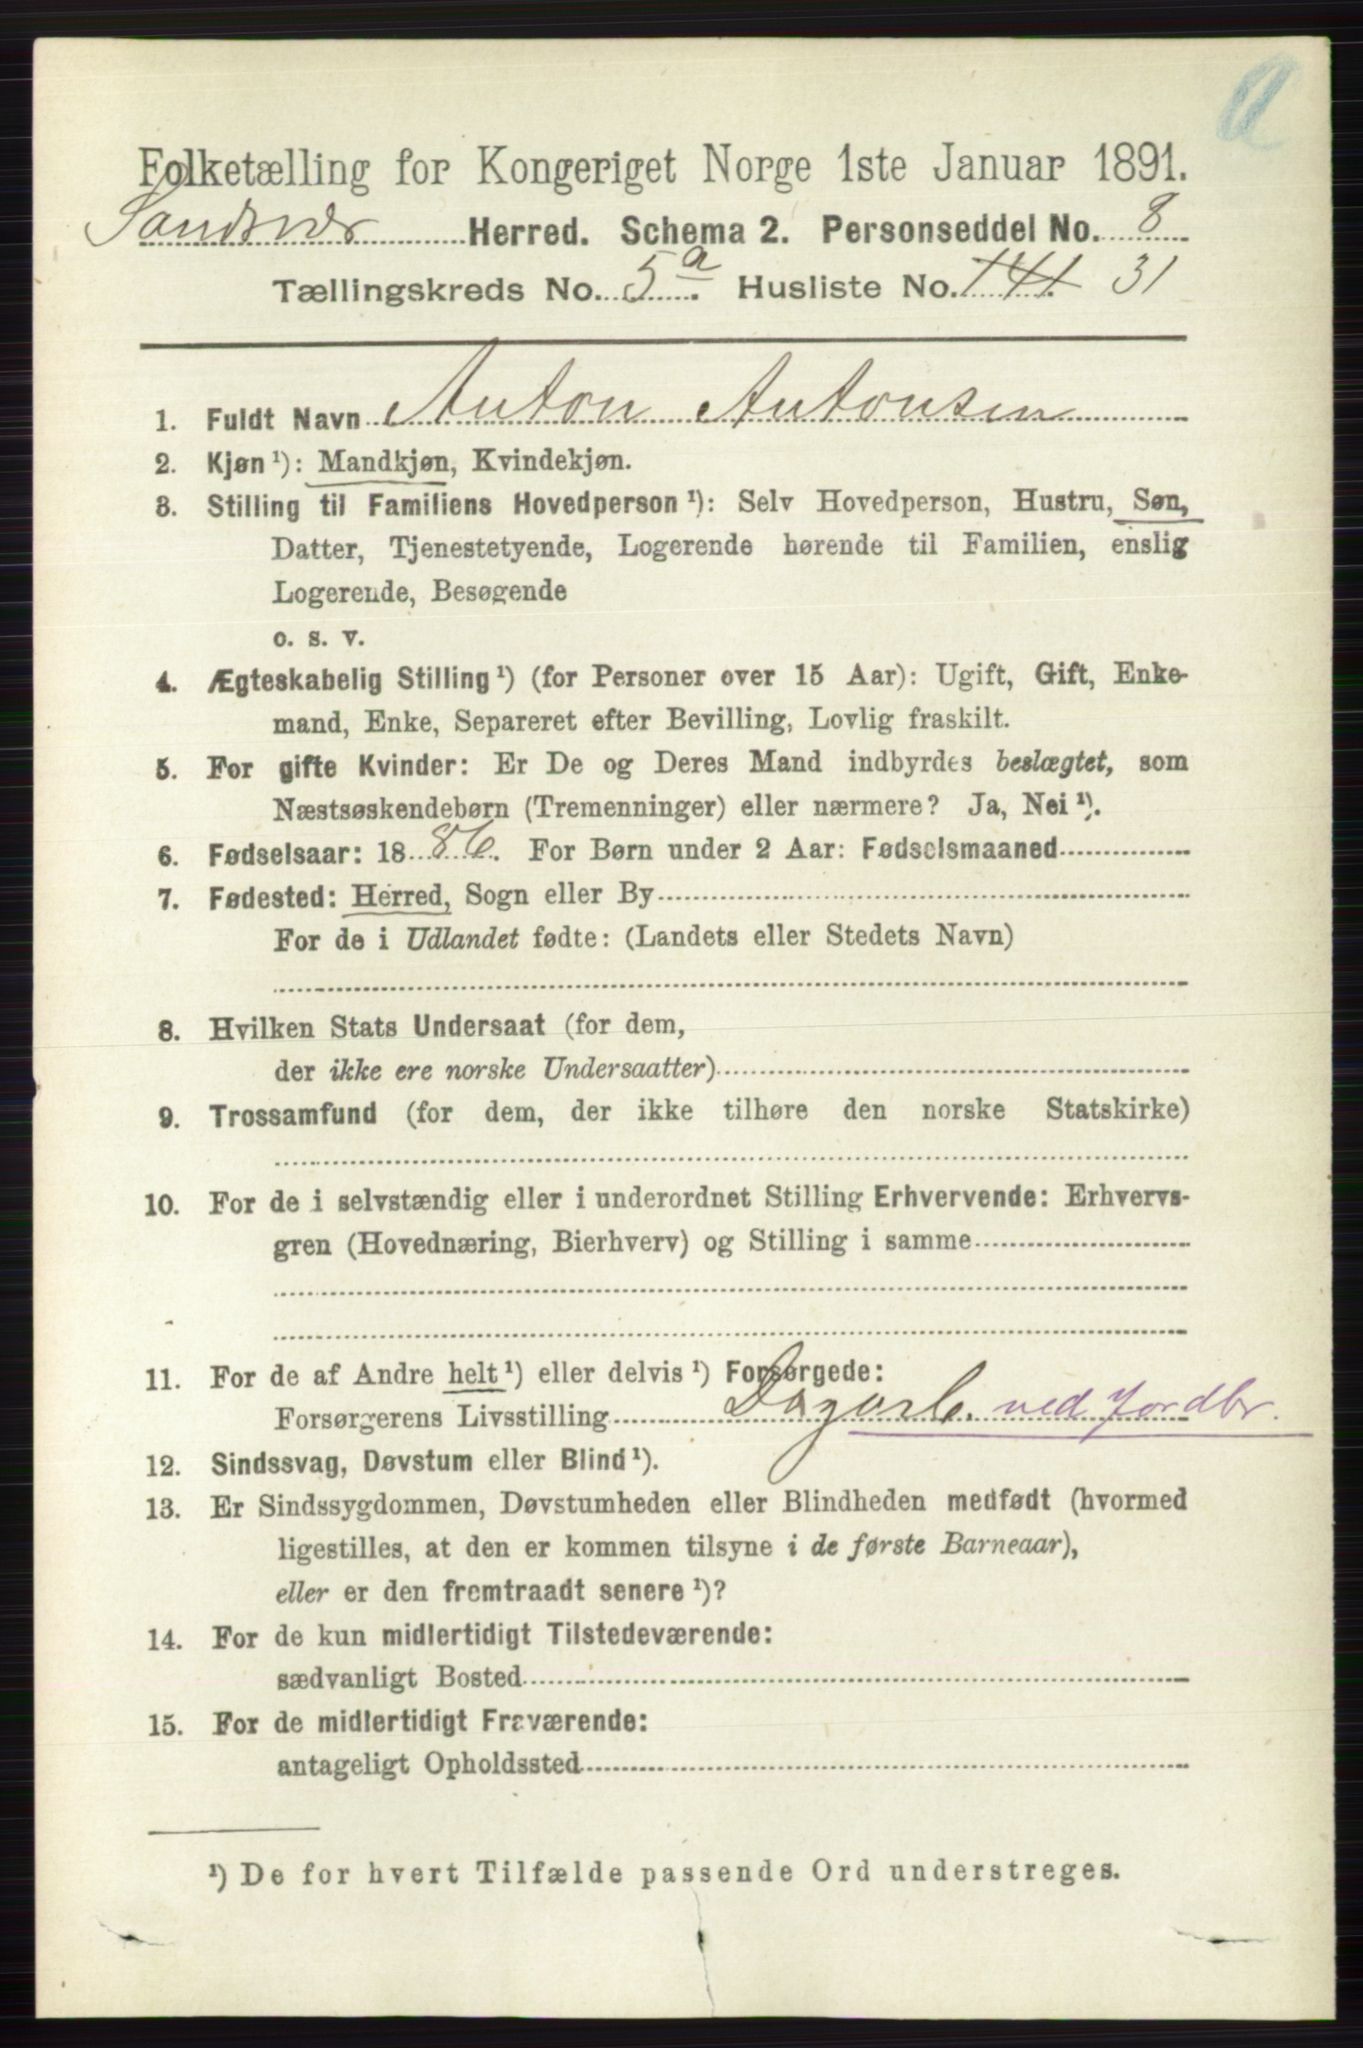 Folketælling for Kongeriget Norge 1ste Januar 1891.
Sandsvær Herred. Schema 2. Personseddel No. 8
Tællingskreds No. 5a. Husliste No. 141 31
1. Fuldt Navn Anton Antonsen
2. Kjøn ¹): Mandkjøn, Kvindekjøn.
3. Stilling til Familiens Hovedperson ¹): Selv Hovedperson, Hustru, Søn,
Datter, Tjenestetyende, Logerende hørende til Familien, enslig
Logerende, Besøgende
o. s. v.
4. Ægteskabelig Stilling ¹) (for Personer over 15 Aar): Ugift, Gift, Enke-
mand, Enke, Separeret efter Bevilling, Lovlig fraskilt.
5. For gifte Kvinder: Er De og Deres Mand indbyrdes beslægtet, som
Næstsøskendebørn (Tremenninger) eller nærmere? Ja, Nei ¹).
6. Fødselsaar: 1886. For Børn under 2 Aar: Fødselsmaaned
7. Fødested: Herred, Sogn eller By
For de i Udlandet fødte: (Landets eller Stedets Navn)
8. Hvilken Stats Undersaat (for dem,
der ikke ere norske Undersaatter)
9. Trossamfund (for dem, der ikke tilhøre den norske Statskirke)
10. For de i selvstændig eller i underordnet Stilling Erhvervende: Erhvervs-
gren (Hovednæring, Bierhverv) og Stilling i samme
11. For de af Andre helt ¹) eller delvis ¹) Forsørgede:
Forsørgerens Livsstilling Dagarb. ved Jordbr.
12. Sindssvag, Døvstum eller Blind ¹).
13. Er Sindssygdommen, Døvstumheden eller Blindheden medfødt (hvormed
ligestilles, at den er kommen tilsyne i de første Barneaar),
eller er den fremtraadt senere ¹)?
14. For de kun midlertidigt Tilstedeværende:
sædvanligt Bosted
15. For de midlertidigt Fraværende:
antageligt Opholdssted
¹) De for hvert Tilfælde passende Ord understreges.